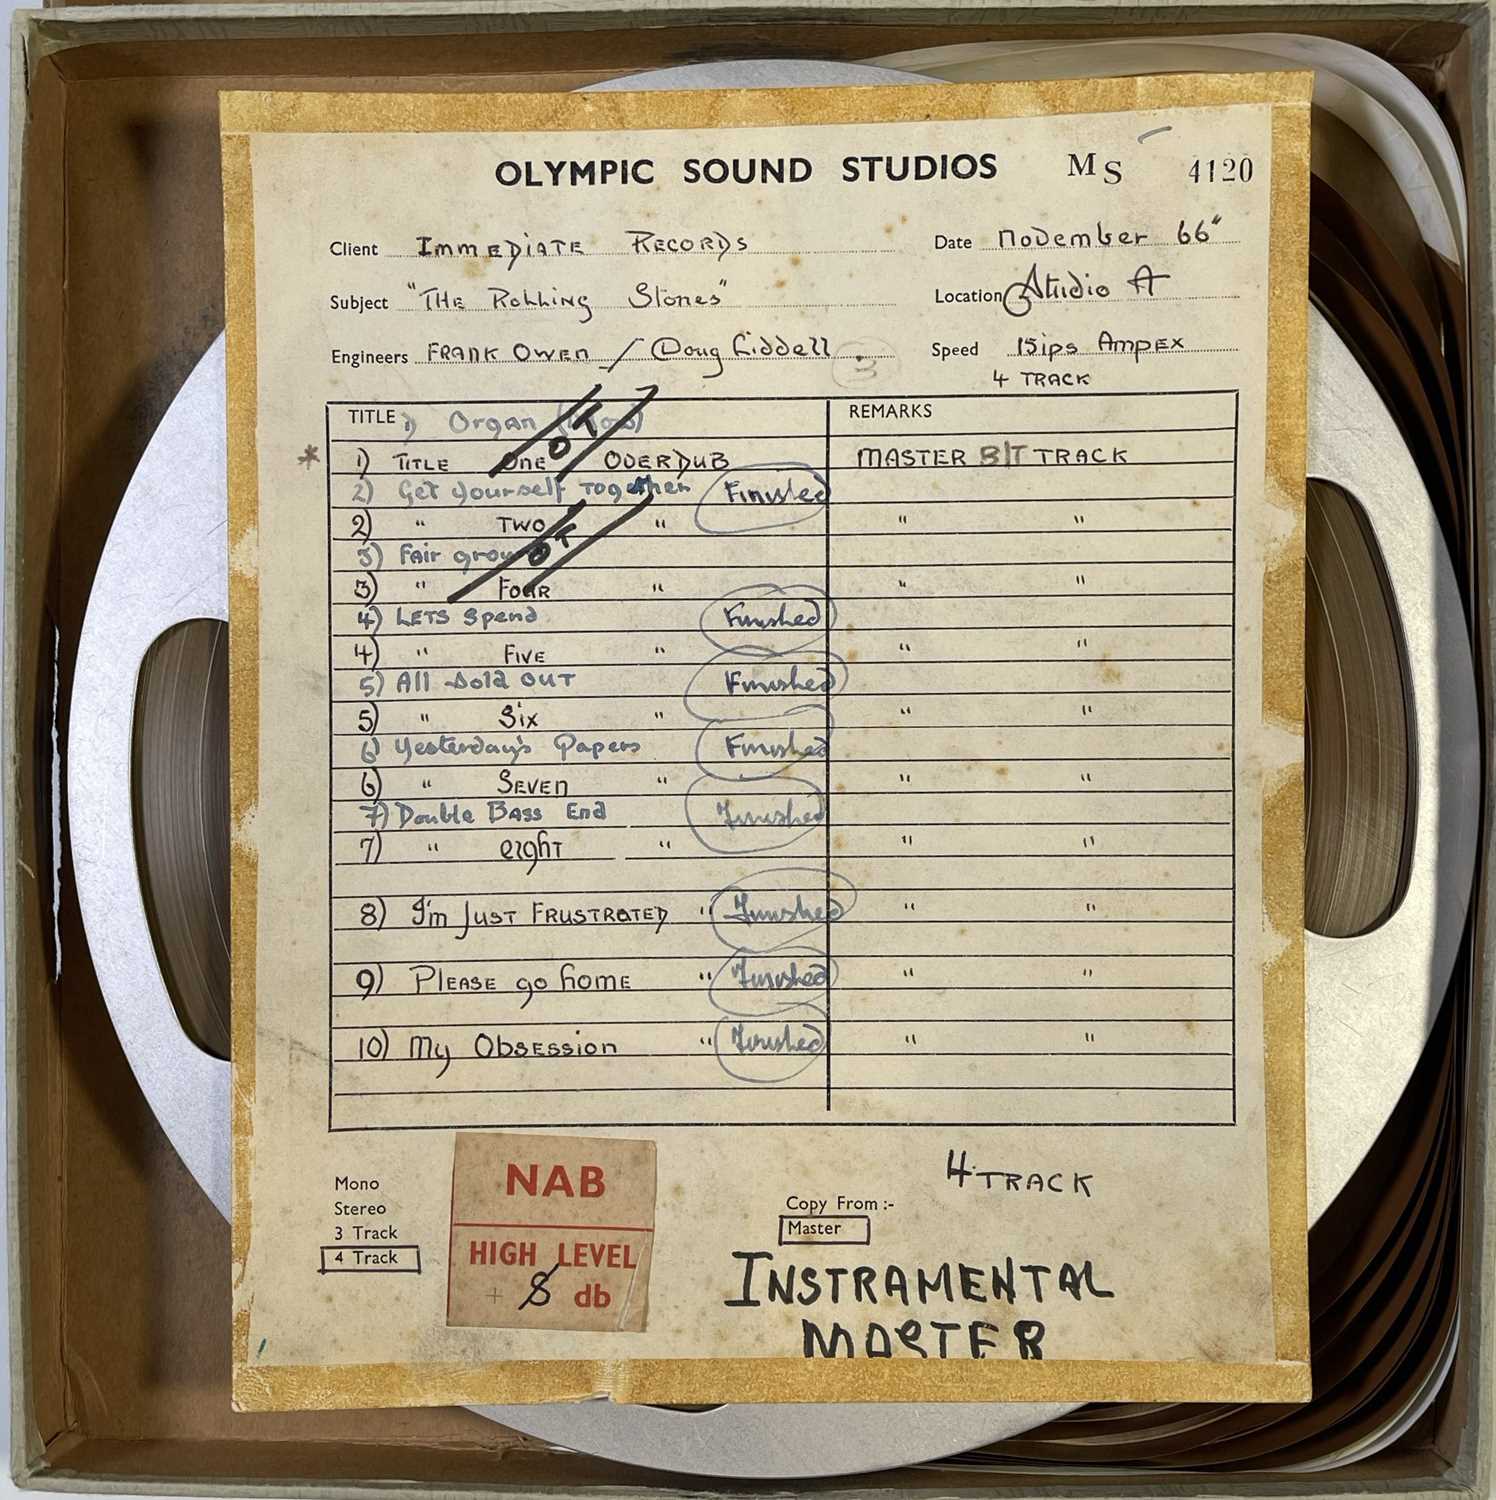 OLYMPIC SOUND STUDIOS MS 4120
Client Immediate Records Date November 66"
Subject "The Rolling Stones" Location Studio A
Engineers Frank Owen / Doug Liddell 3 Speed 15ips Ampex
4 TRACK
TITLE 1) Organ REMARKS
* 1) Title One OT OverDub MASTER B/T TRACK
2) Get yourself Together Finished
2) " Two " " "
3) Fair OT
3) " Four " " "
4) Lets Spend Finished
4) " Five " " "
5) All Sold Out Finished
5) " Six " " "
6) Yesterday's Papers Finished
6) " Seven " " "
7) Double Bass End Finished
7) " eight " " "
8) I'm Just Frustrated " Finished " "
9) Please go home " Finished " "
10) My Obsession " Finished " "
Mono
Stereo
3 Track
4 Track
NAB
HIGH LEVEL
+ 8 db
4 TRACK
Copy From :-
Master
INSTRAMENTAL
MASTER